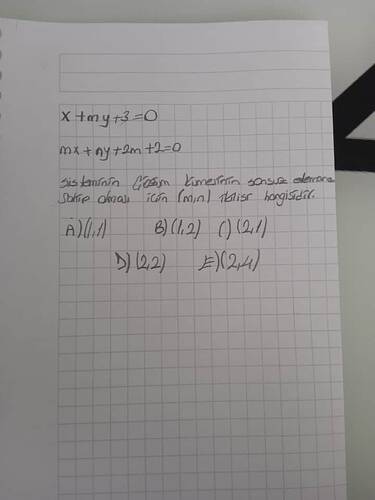 x + my + 3 = 0
mx + ny + 2m + 2 = 0
sisteminin Çözüm kümesinin sonsuz elemana
sahip olması için (m,n) ikilisi hangisidir.
A)(1,1) B)(1,2) C)(2,1)
D)(2,2) E)(2,4)